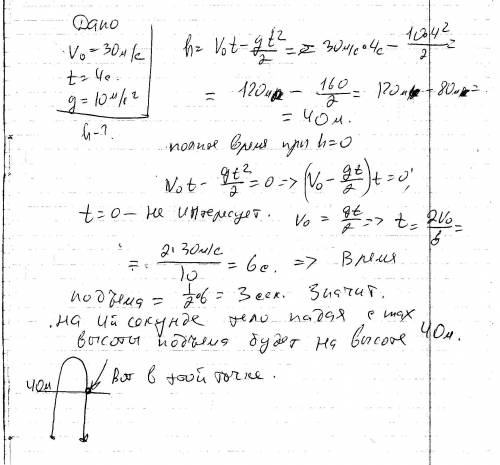 Дано
V₀ = 30 м/с
t = 4с.
g = 10 м/с²
h-?
h = V₀t - gt²/2 = 30 м/с · 4с - 10·4²/2 =
= 120м - 160/2 = 120м - 80м =
= 40 м.
полное время при h=0
V₀t - gt²/2 = 0 => (V₀ - gt/2) t = 0;
t = 0 - не интересует. V₀ = gt/2 => t = 2V₀/g =
= 2·30 м/с / 10 = 6с. => Время
подъема = 1/2 · 6 = 3 сек. Значит.
на 4й секунде тело падая с max
высоты подъема будет на высоте 40м.
40м
Вот в этой точке.